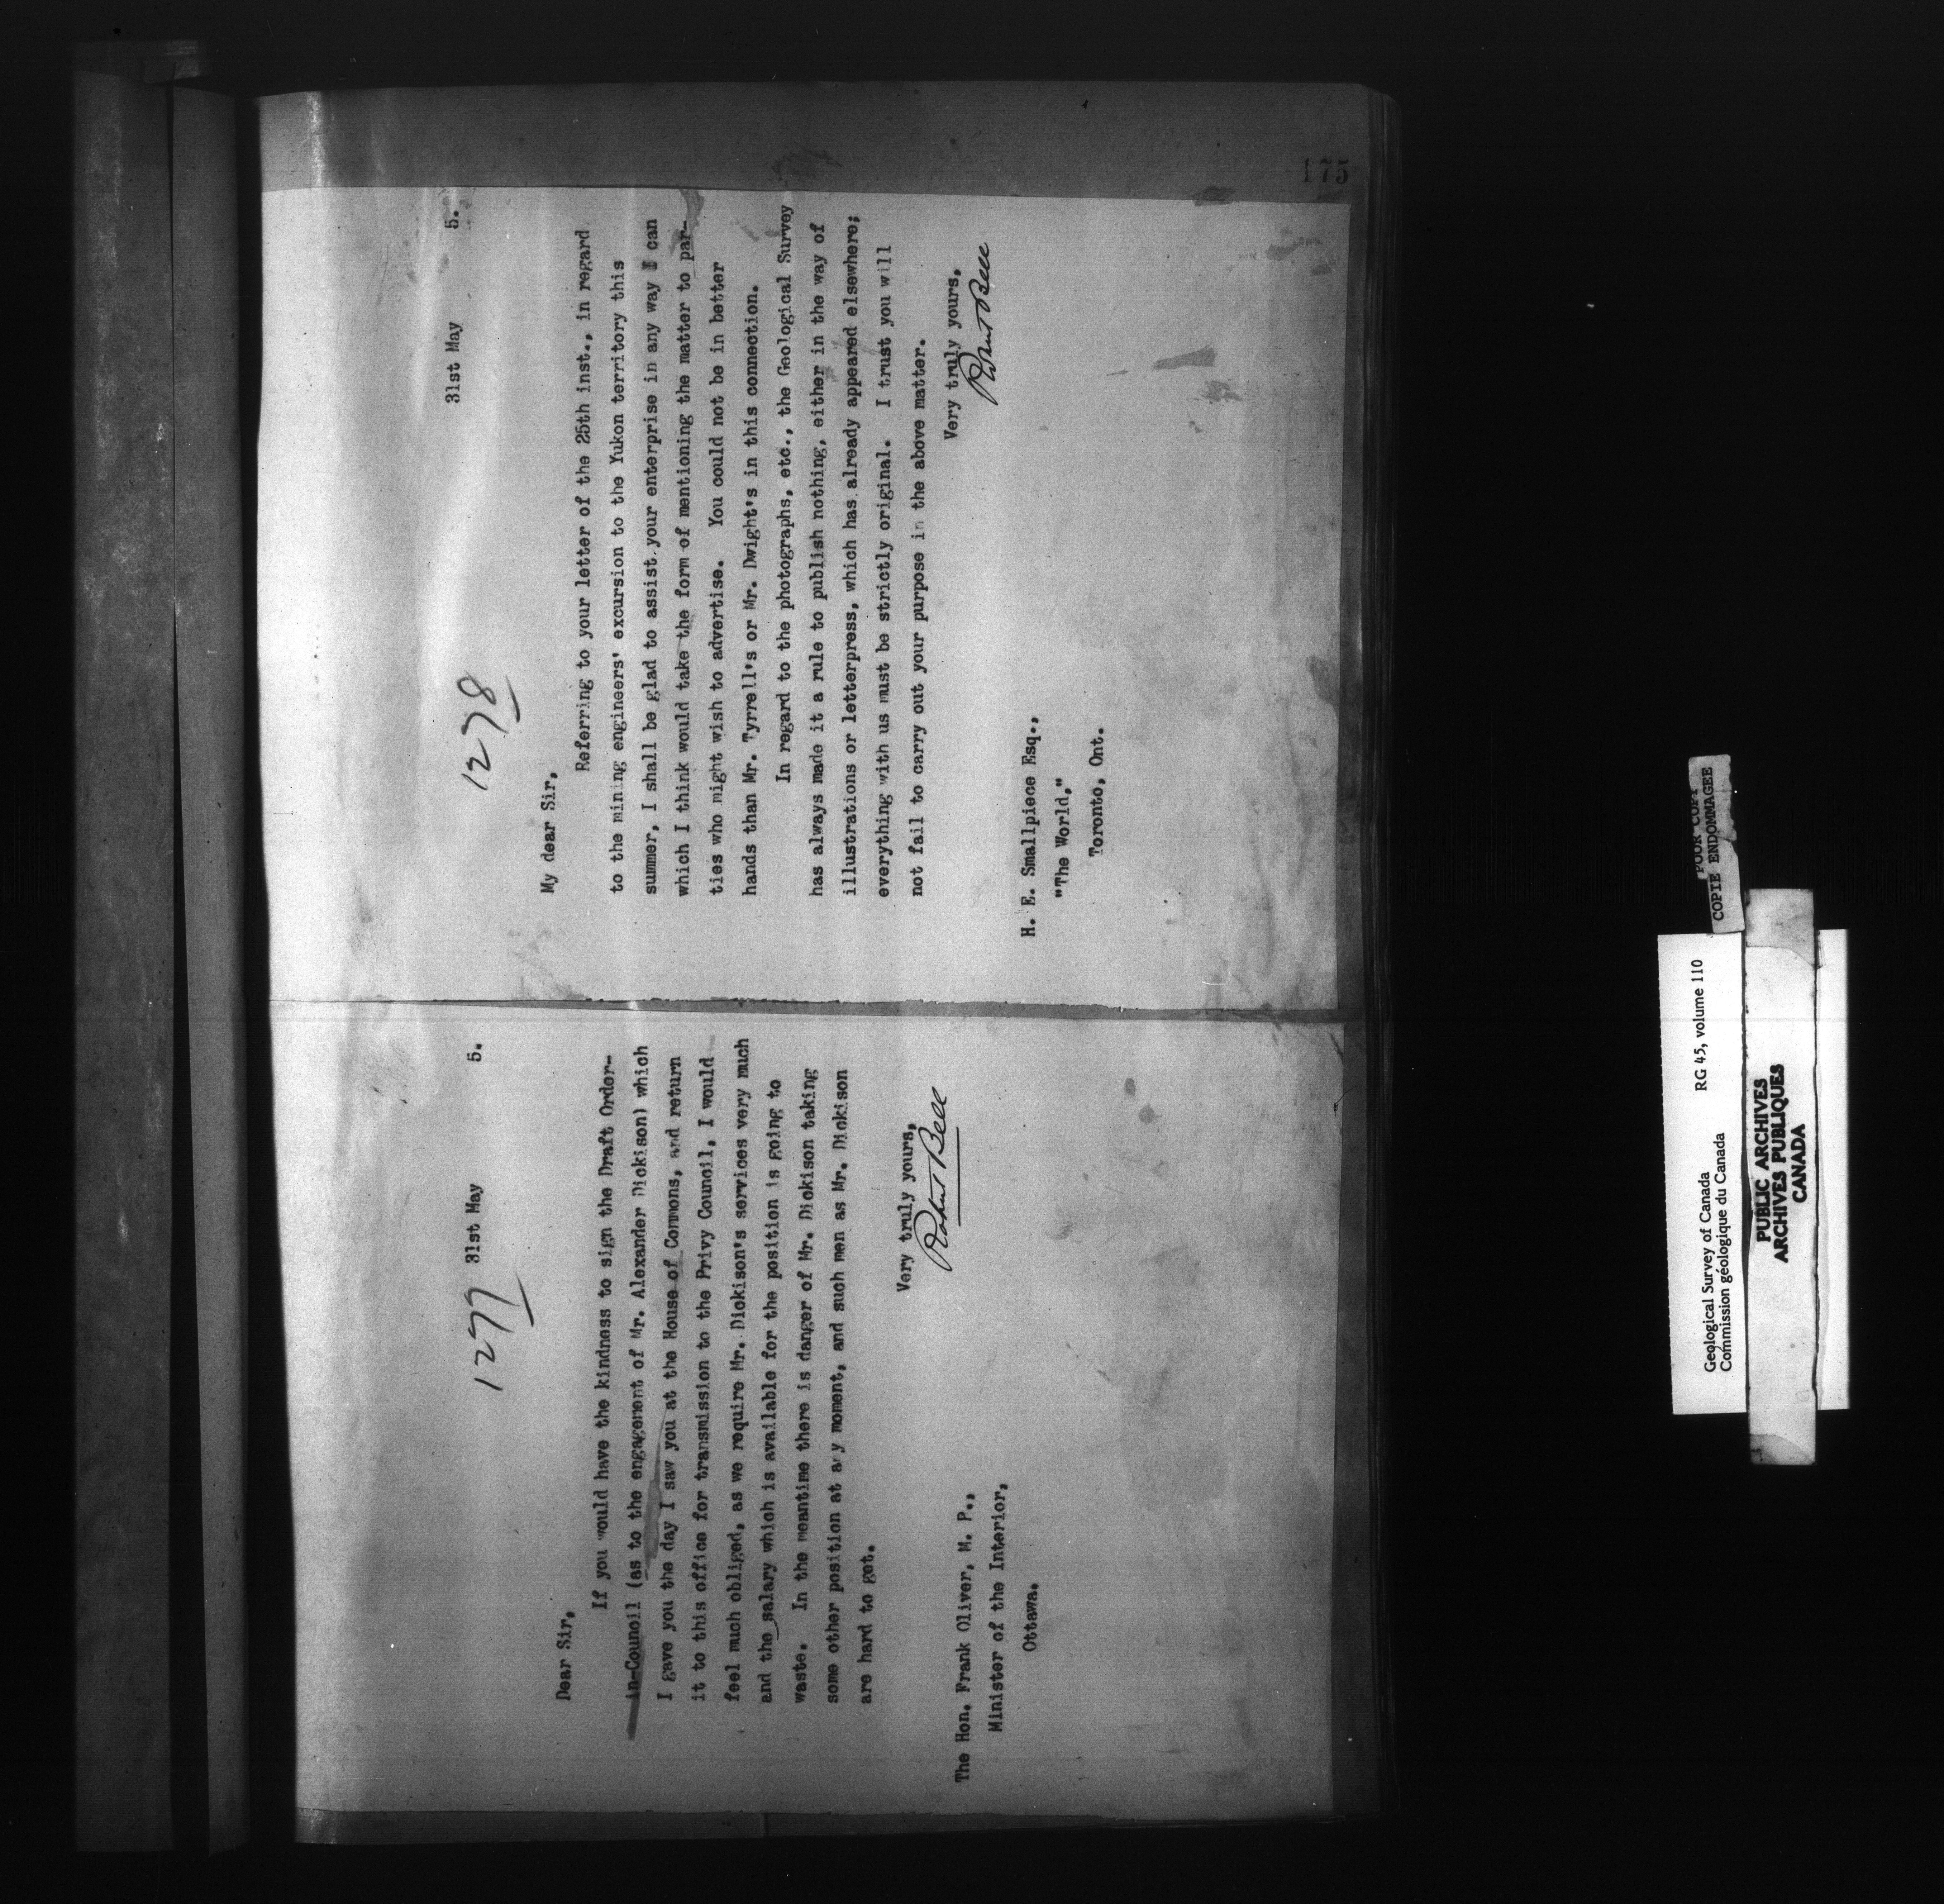 1277
31st May 5.
Dear Sir,
If you would have the kindness to sign the Draft Order-
in-Council (as to the engagement of Mr. Alexander Dickison) which
I gave you the day I saw you at the House of Commons, and return
it to this office for transmission to the Privy Council, I would
feel much obliged, as we require Mr. Dickison's services very much
and the salary which is available for the position is going to
waste. In the meantime there is danger of Mr. Dickison taking
some other position at any moment, and such men as Mr. Dickison
are hard to get.
Very truly yours,
Robert Bell
The Hon. Frank Oliver, M. P.,
Minister of the Interior,
Ottawa.
175
1278
31st May 5.
My dear Sir,
Referring to your letter of the 25th inst., in regard
to the mining engineers' excursion to the Yukon territory this
summer, I shall be glad to assist your enterprise in any way I can
which I think would take the form of mentioning the matter to par-
ties who might wish to advertise. You could not be in better
hands than Mr. Tyrrell's or Mr. Dwight's in this connection.
In regard to the photographs, etc., the Geological Survey
has always made it a rule to publish nothing, either in the way of
illustrations or letterpress, which has already appeared elsewhere;
everything with us must be strictly original. I trust you will
not fail to carry out your purpose in the above matter.
Very truly yours,
Robert Bell
H. E. Smallpiece Esq.,
"The World,"
Toronto, Ont.
POOR COPY
COPIE ENDOMMAGEE
Geological Survey of Canada RG 45, volume 110
Commission géologique du Canada
PUBLIC ARCHIVES
ARCHIVES PUBLIQUES
CANADA